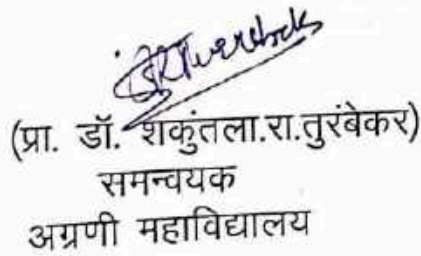 (प्रा. डॉ. शकुंतला.रा.तुरंबेकर)
समन्वयक
अग्रणी महाविद्यालय